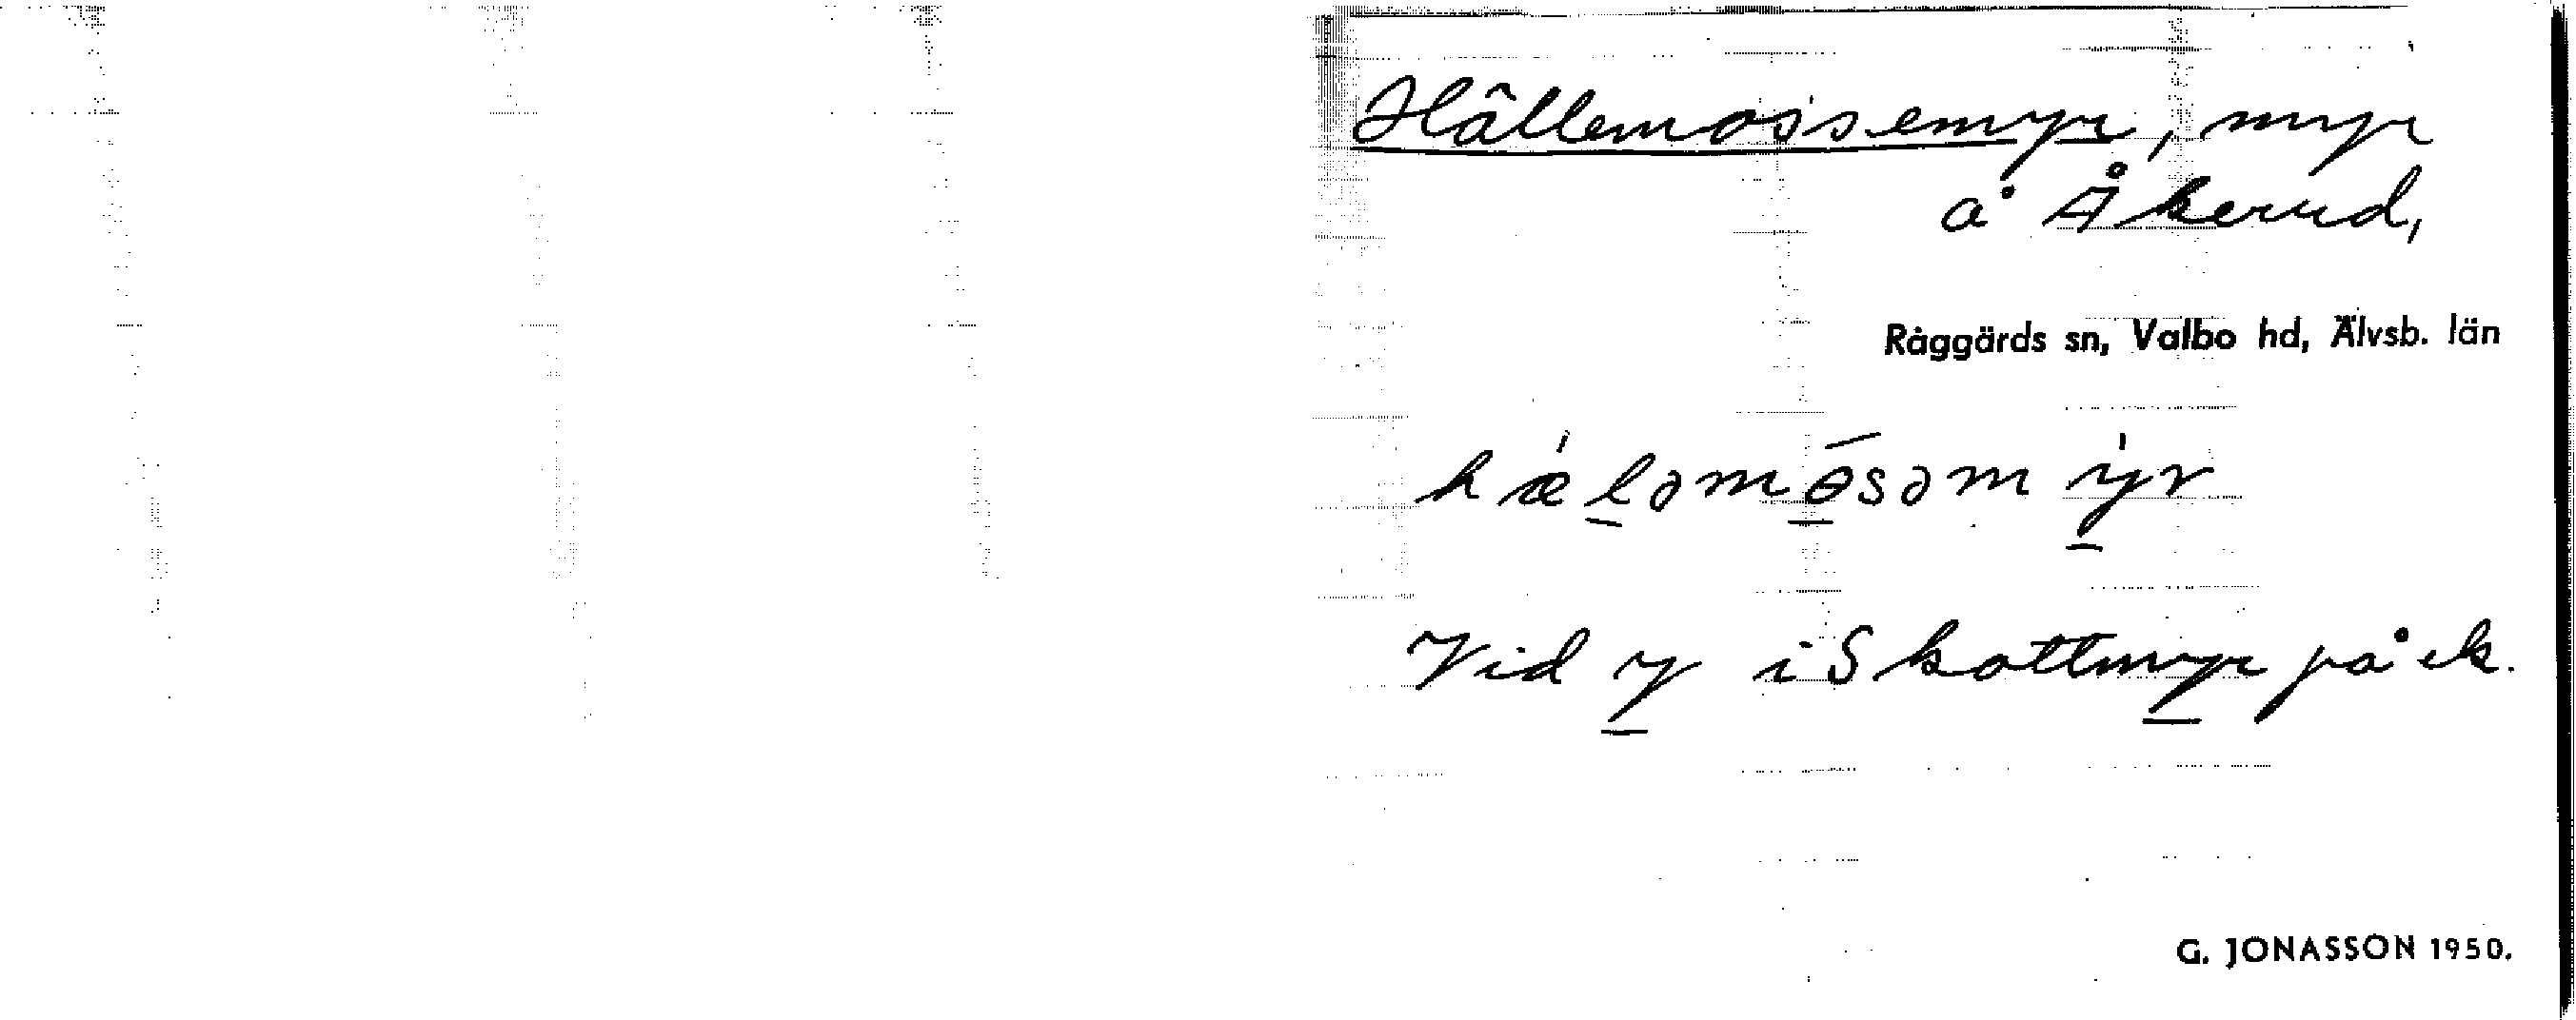 Hâllemossemyr, myr
å Åkerud,
Råggärds sn, Valbo hd, Älvsb. län
hælǝmɵ́sǝmyr
Vid y i Skottmyr på ek.
G. JONASSON 1950.